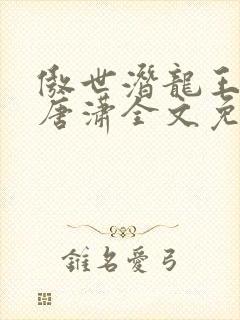 傲世潛龍王
唐瀟全文免
錐名愛弓